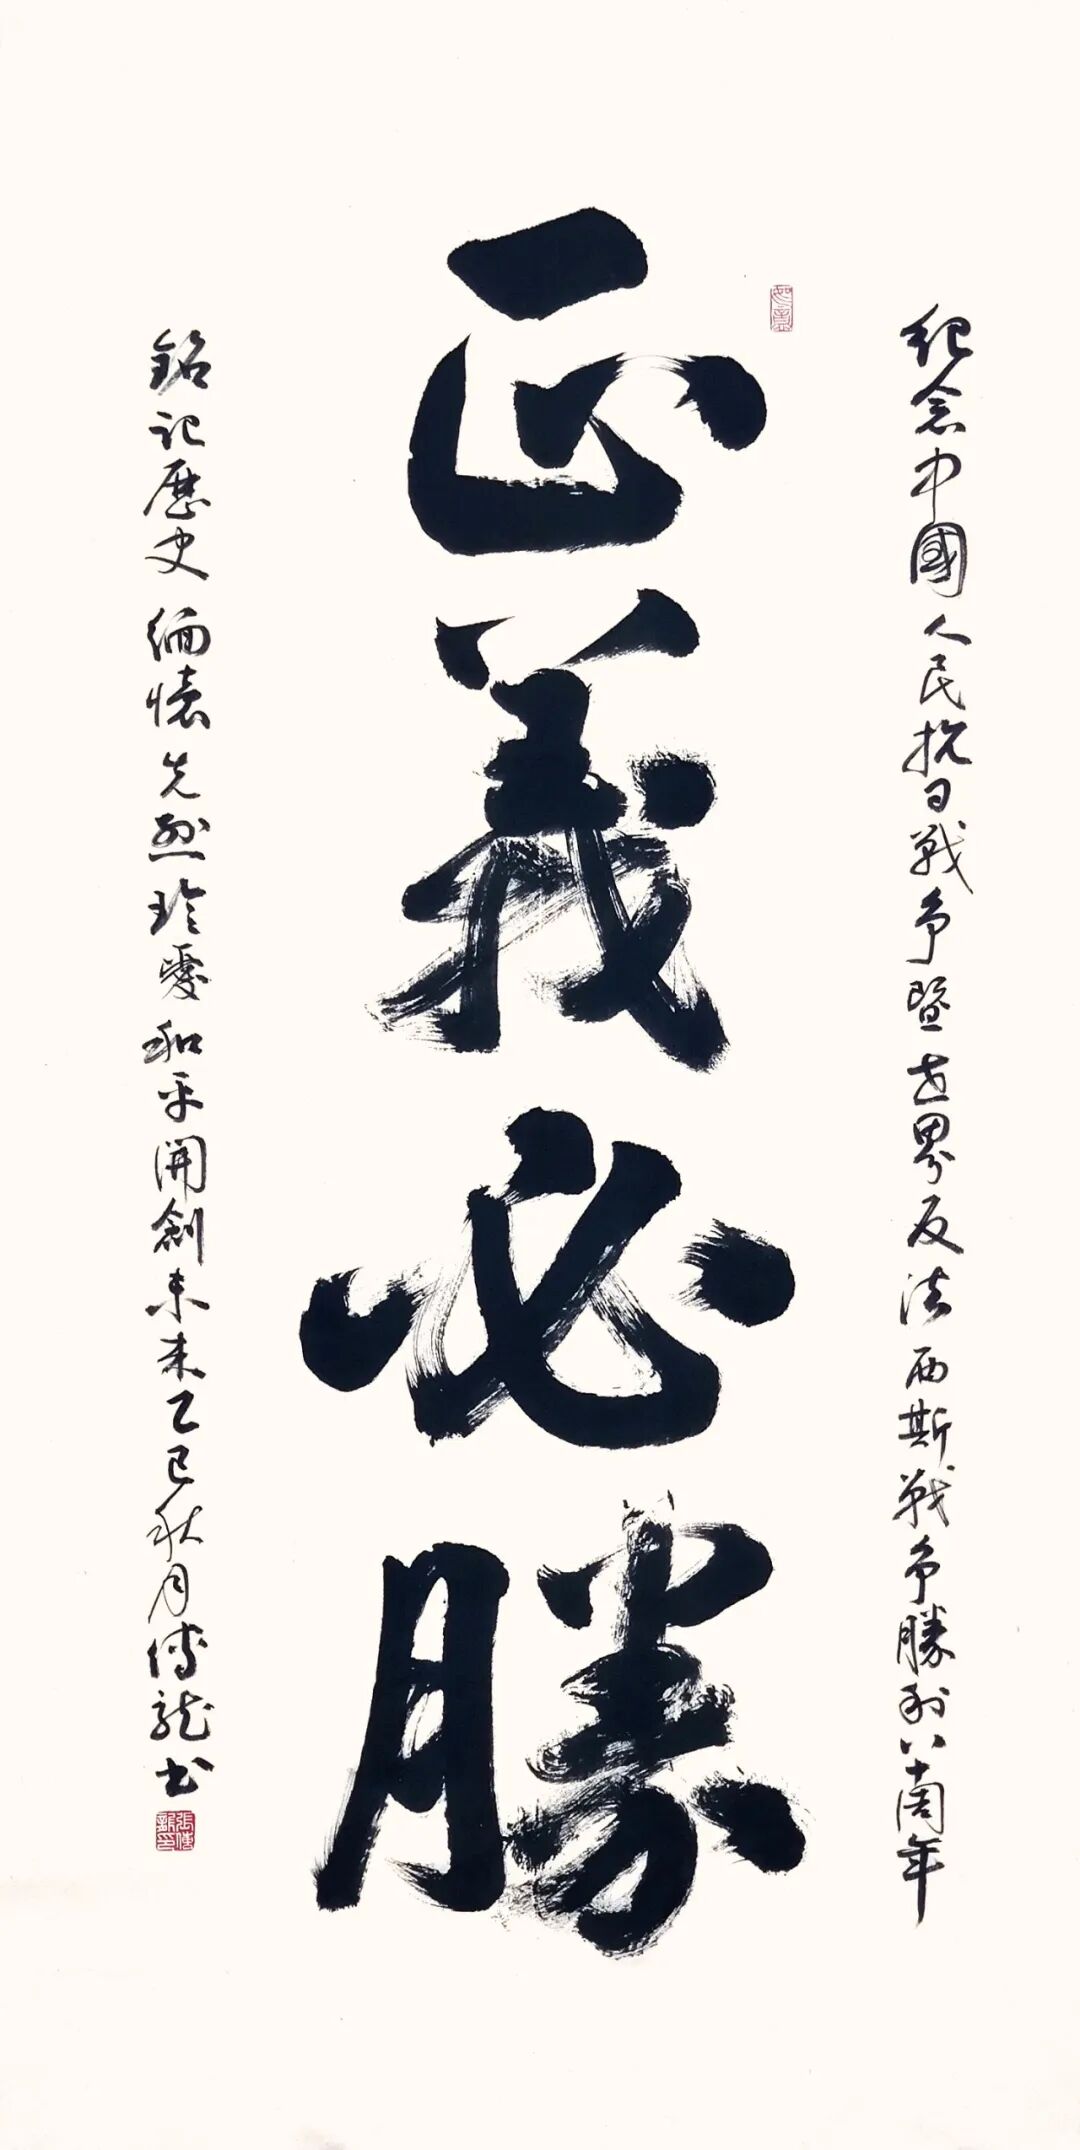 紀念中國人民抗日戰爭暨世界反法西斯戰爭勝利八十周年
如意
正義必勝
銘記歷史 緬懷先烈 珍愛和平 開創未來 乙巳秋月 傳龍書